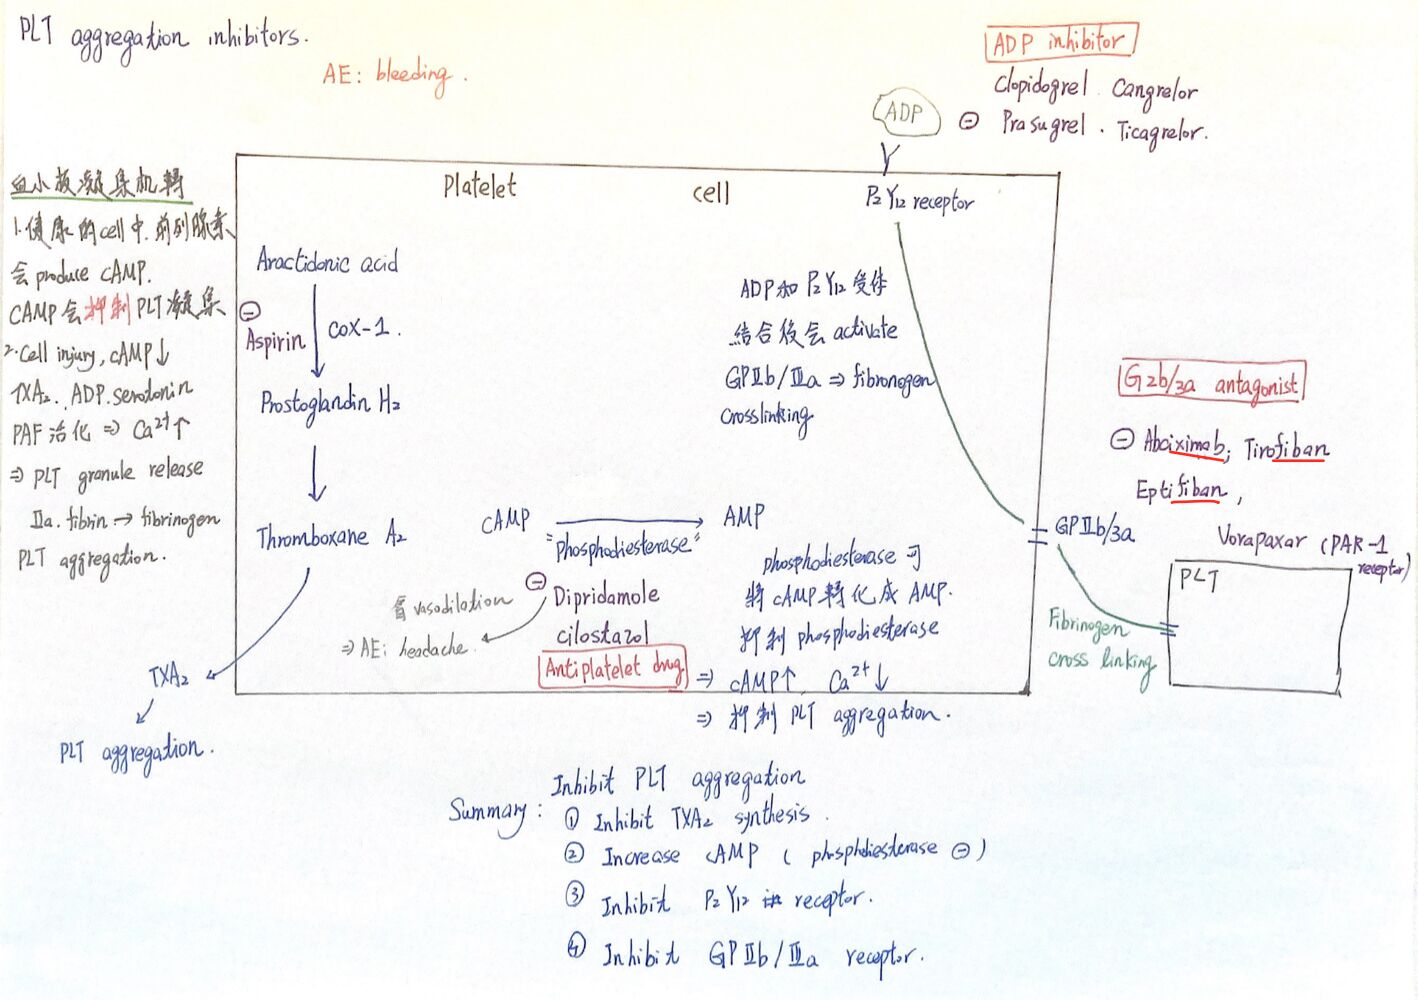 PLT aggregation inhibitors.
AE: bleeding.
ADP inhibitor
Clopidogrel. Cangrelor
⊖ Prasugrel. Ticagrelor.
ADP
P₂Y₁₂ receptor
Platelet cell
血小板凝集机轉
1.健康的cell中.前列腺素
会 produce cAMP.
CAMP会抑制PLT凝集
2.Cell injury, cAMP↓
TXA₂. ADP. serotonin
PAF 活化 ⇒ Ca²⁺↑
⇒ PLT granule release
Ⅱa. fibrin → fibrinogen
PLT aggregation.
Aractidonic acid
⊖
Aspirin
COX-1.
Prostoglandin H₂
Thromboxane A₂
TXA₂
PLT aggregation.
ADP和P₂Y₁₂受体
結合後会 activate
GPⅡb/Ⅲa ⇒ fibronogen
crosslinking
cAMP
AMP
"phosphodiesterase"
⊖ Dipridamole
cilostazol
Antiplatelet drug
vasodilation
⇒ AE: headache.
phosphodiesterase可
將cAMP轉化成AMP.
抑制phosphodiesterase
⇒ cAMP↑ Ca²⁺↓
⇒ 抑制 PLT aggregation.
G2b/3a antagonist
⊖ Abciximab; Tirofiban
Eptifiban,
GPⅡb/3a
Vorapaxar (PAR-1
receptor)
PLT
Fibrinogen
cross linking
Inhibit PLT aggregation
Summary: ① Inhibit TXA₂ synthesis.
② Increase cAMP (phosphdiesterase ⊖)
③ Inhibit P₂Y₁₂ receptor.
④ Inhibit GPⅡb/Ⅲa receptor.